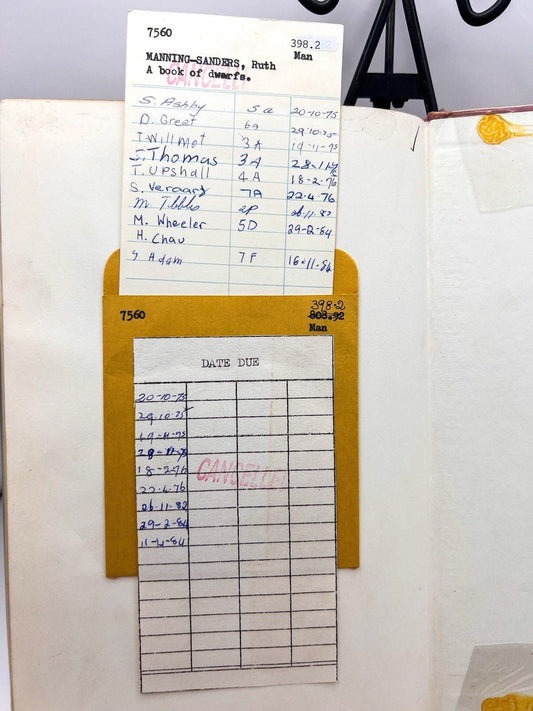 7560
398.2
MANNING-SANDERS, Ruth Man
A book of dwarfs.
CANCELLED
S. Ashby 5a 20-10-75
D. Greet 6A 29.10.75
T. Willmot 3A 19-11-75
S. Thomas 3A 28-11-75
T. Upshall 4A 18-2-76
S. Veraart 7A 22.4.76
M. Tibbls 2P 26.11.82
M. Wheeler 5D 29-2-84
H. Chau
S Adam 7F 16-11-84
398.2
7560 808.92
Man
DATE DUE
20-10-75
29.10.75
19-11-75
28-11-75
18-2-76
22.4.76
26.11.82
29-2-84
11-4-84
CANCELLED